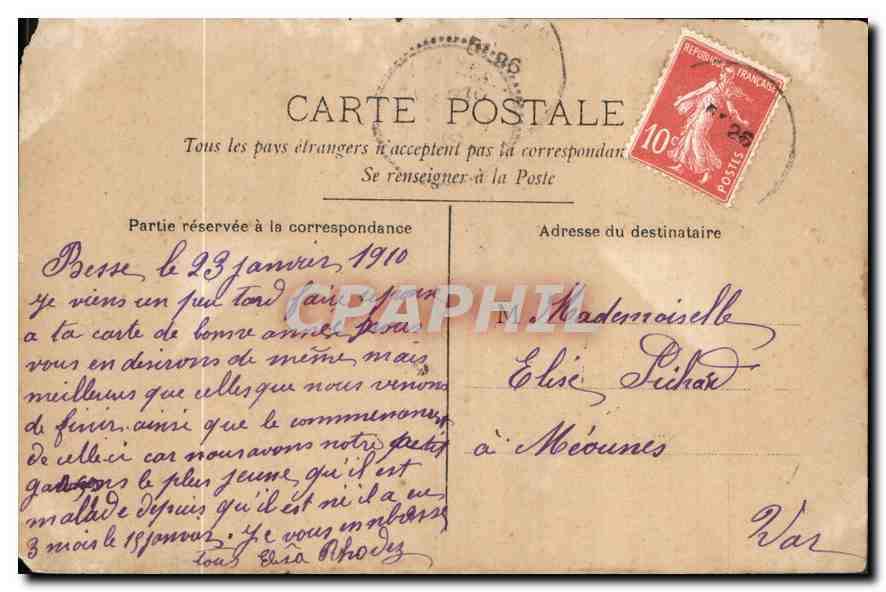 5*26
CARTE POSTALE
Tous les pays étrangers n'acceptent pas la correspondan
Se renseigner à la Poste
REPUBLIQUE FRANÇAISE
10c
POSTES
5*26
Partie réservée à la correspondance
Besse le 23 janvier 1910
je viens un peu tard faire reponse
a ta carte de bonne année nous
vous en desirons de même mais
meilleures que celles que nous venons
de finir ainsi que le commencement
de celle ci car nous avons notre petit
garçons le plus jeune qu'il est
malade depuis qu'il est né il a eu
3 mois le 15 janvar. Je vous embrasse
tous Elisa Rhodez
Adresse du destinataire
M Mademoiselle
Elise Pichard
à Méounes
Var
CPAPHIL